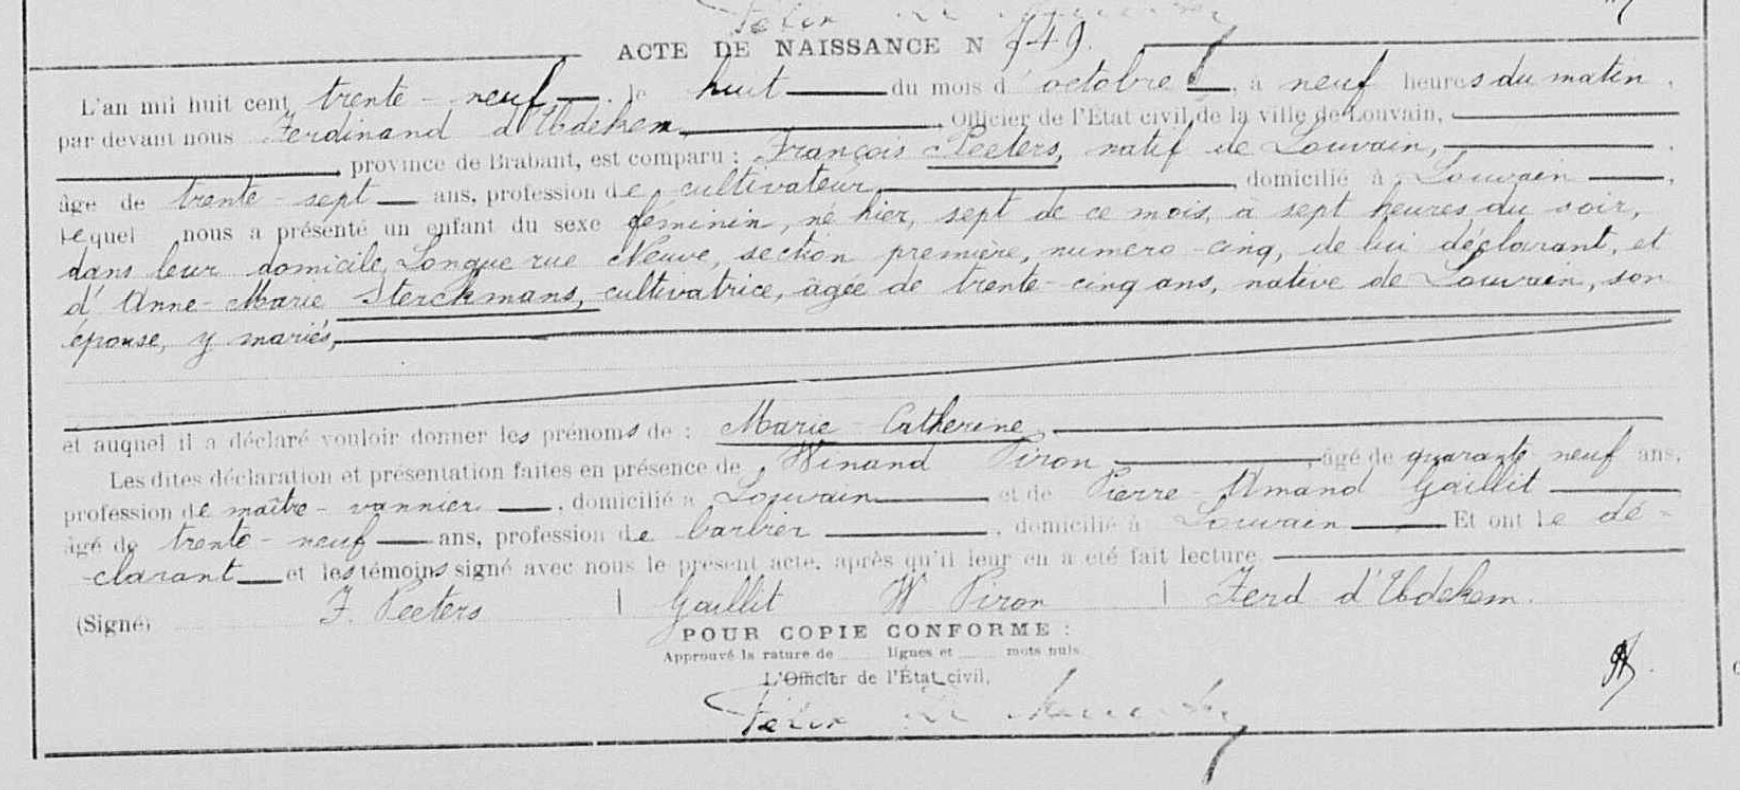 ACTE DE NAISSANCE N 749.
L'an mil huit cent trente-neuf, le huit du mois d'octobre, à neuf heures du matin,
par devant nous Ferdinand d'Udekem, Officier de l'État civil de la ville de Louvain,
province de Brabant, est comparu : François Peeters, natif de Louvain,
âgé de trente-sept ans, profession de cultivateur, domicilié à Louvain,
lequel nous a présenté un enfant du sexe féminin, né hier, sept de ce mois, à sept heures du soir,
dans leur domicile, Longue rue Neuve, section première, numero cinq, de lui déclarant, et
d'Anne-Marie Sterckmans, cultivatrice, âgée de trente-cinq ans, native de Louvain, son
épouse, y mariés,
et auquel il a déclaré vouloir donner les prénoms de : Marie Catherine
Les dites déclaration et présentation faites en présence de Winand Piron, âgé de quarante neuf ans,
profession de maître-vannier, domicilié à Louvain et de Pierre-Amand Gaillit
âgé de trente-neuf ans, profession de barbier, domicilié à Louvain Et ont le dé-
-clarant et les témoins signé avec nous le présent acte, après qu'il leur en a été fait lecture.
(Signé) F. Peeters | Gaillit W Piron | Ferd d'Udekem.
POUR COPIE CONFORME :
Approuvé la rature de lignes et mots nuls.
L'Officier de l'État civil,